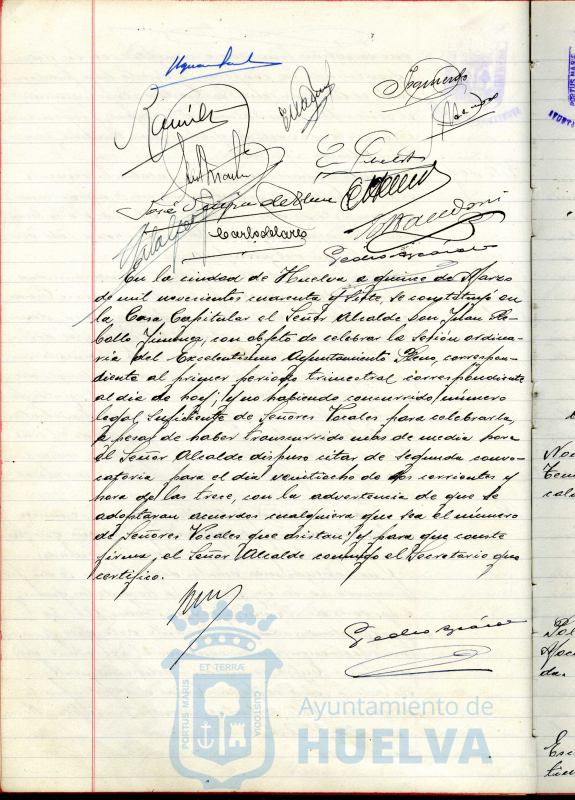 Ramírez
Izquierdo
José
Carlos
Pedro
En la ciudad de Huelva a quince de Marzo
de mil novecientos cuarenta y siete, se constituyó en
la Casa Capitular el Señor Alcalde Don Juan Re-
bollo Jimenez, con objeto de celebrar la Sesión ordina-
ria del Excelentísimo Ayuntamiento Pleno, correspon-
diente al primer periodo trimestral correspondiente
al dia de hoy; y no habiendo concurrido número
legal suficiente de Señores Vocales para celebrarla,
a pesar de haber transcurrido mas de media hora
el Señor Alcalde dispuso citar de segunda convo-
catoria para el dia veintiocho de los corrientes y
hora de las trece, con la advertencia de que se
adoptaran acuerdos cualquiera que sea el número
de Señores Vocales que asistan; y para que conste
firma, el Señor Alcalde conmigo el Secretario que
certifico.
Pedro
ET TERRÆ
PORTUS MARIS
CUSTODIA
Ayuntamiento de
HUELVA